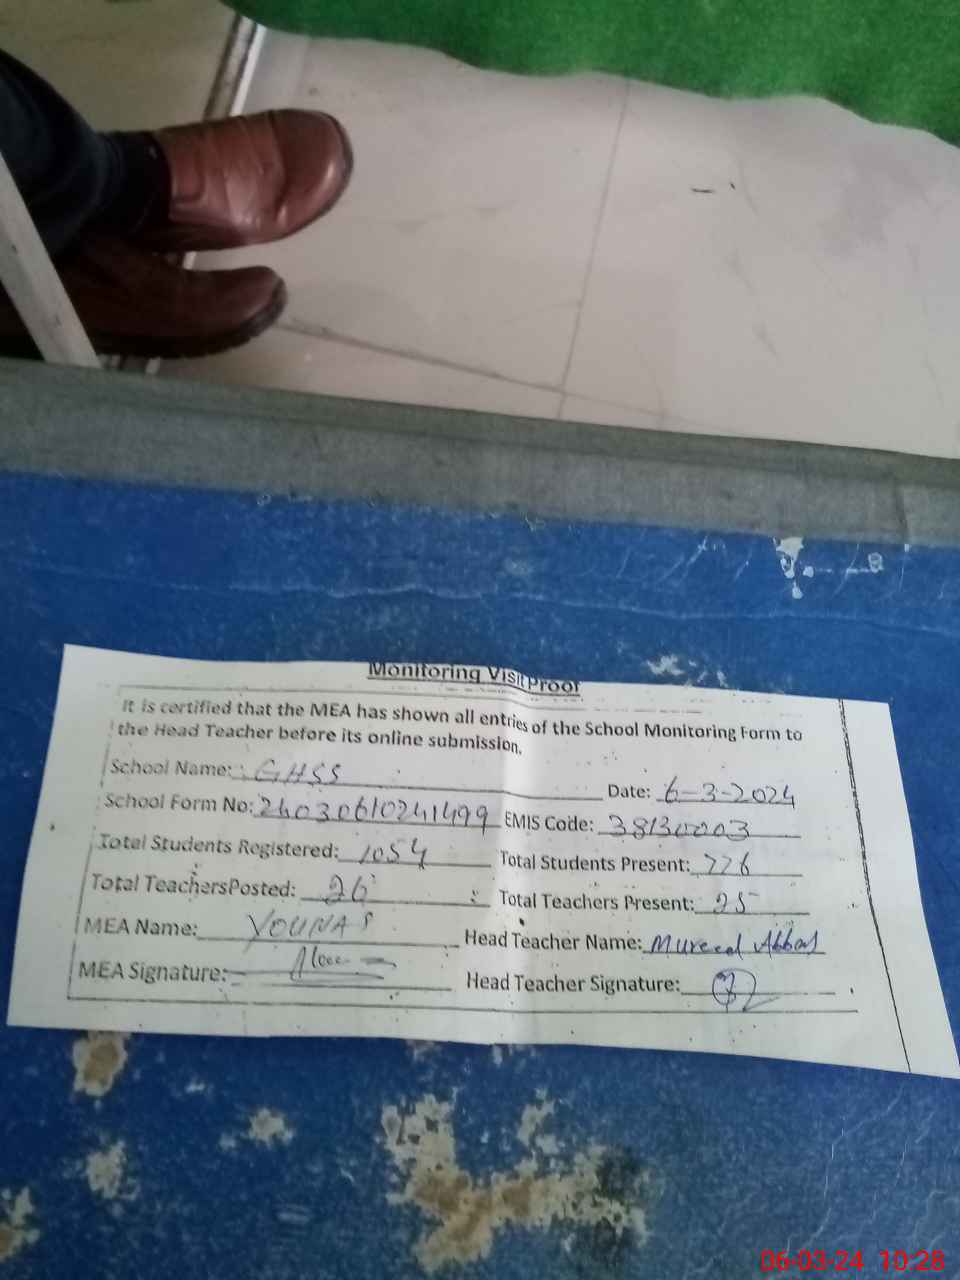 Monitoring Visit Proof
It is certified that the MEA has shown all entries of the School Monitoring Form to
the Head Teacher before its online submission.
School Name: GHSS
Date: 6-3-2024
School Form No: 24030610241499 EMIS Code: 38130003
Total Students Registered: 1054 Total Students Present: 776
Total TeachersPosted: 26 Total Teachers Present: 25
MEA Name: YOUNAS Head Teacher Name: Mureed Abbas
MEA Signature: Head Teacher Signature:
06-03-24 10:28